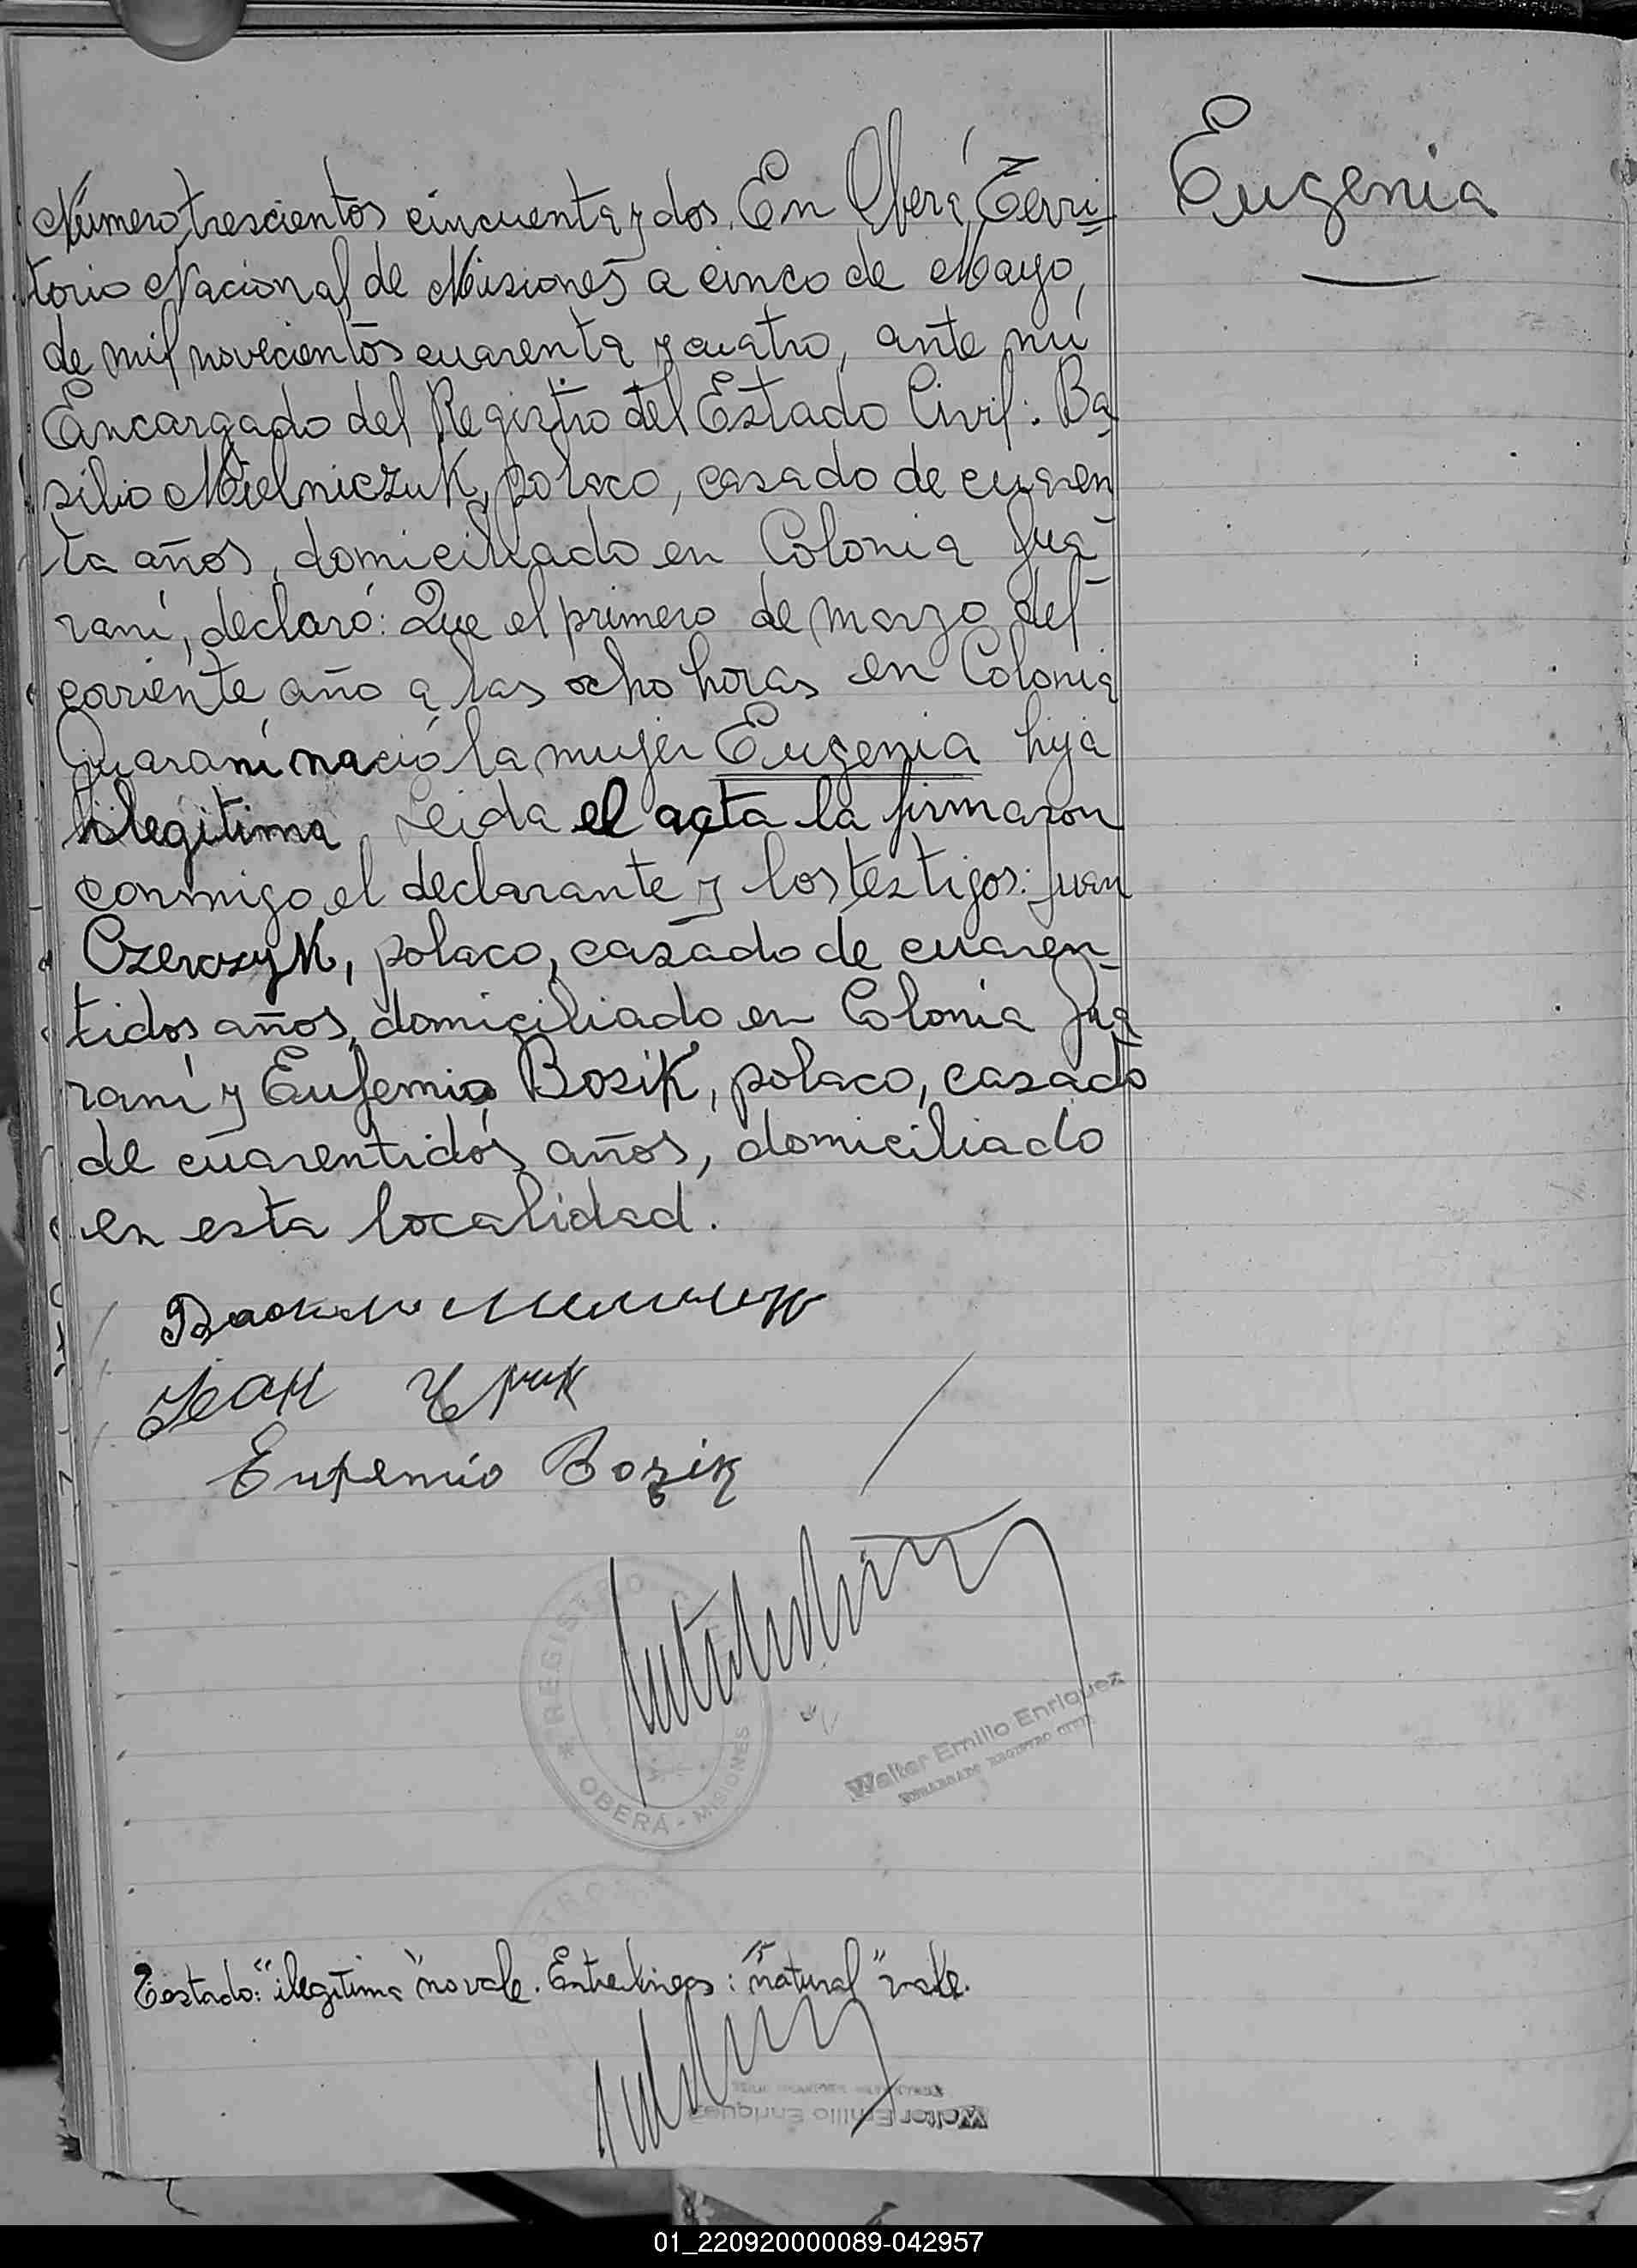 Eugenia
Número trescientos cincuenta y dos. En Oberá, Terri=
torio Nacional de Misiones a cinco de Mayo,
de mil novecientos cuarenta y cuatro, ante mí
Encargado del Registro del Estado Civil: Ba
silio Mielniczuk, polaco, casado de cuaren
ta años, domiciliado en Colonia Gua-
raní, declaró: Que el primero de marzo del
corriente año a las ocho horas en Colonia
Guaraní nació la mujer Eugenia hija
ilegitima Leida el acta la firmaron
conmigo el declarante y los testigos: Juan
polaco, casado de cuaren-
tidos años, domiciliado en Colonia Gua
raní y Eufemio Bosik, polaco, casado
de cuarentidós años, domiciliado
en esta localidad.
Eufemio Bozik
REGISTRO
OBERÁ - MISIONES
Walter Emilio Enriquez
ENCARGADO REGISTRO CIVIL
Testado: "ilegitima" no vale. Entrelineas: "natural" vale.
Walter Emilio Enriquez
01_220920000089-042957